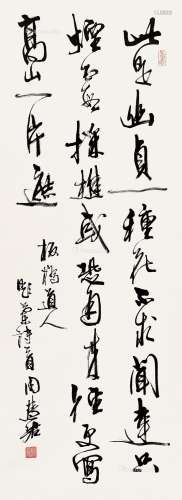 此是幽貞一種花不求聞達只
煙霞採樵或恐通来徑更寫
高山一片遮
板橋道人
蘭詩一首周慧珺